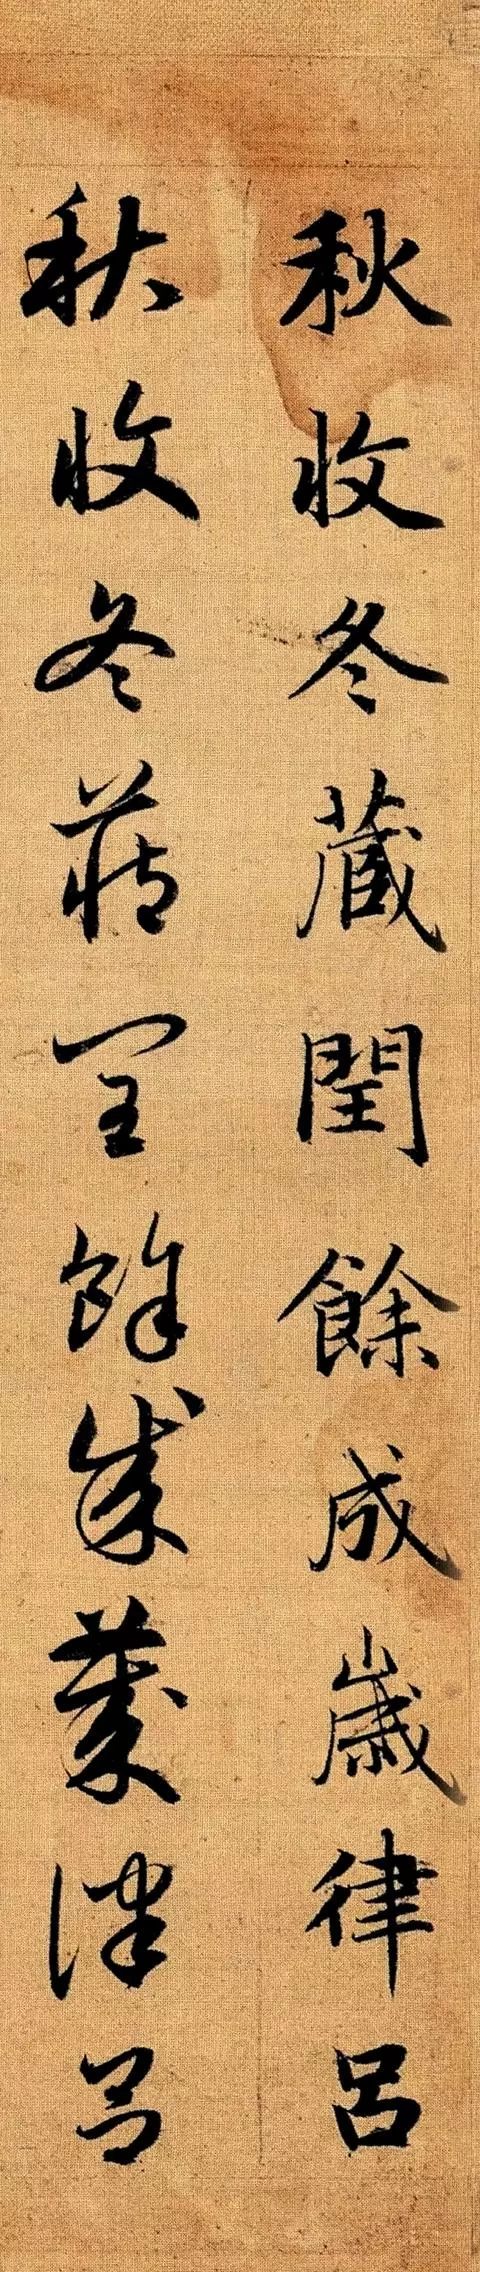 秋收冬蔵閏餘成歲律呂
秋收冬蔵閏餘成歲律呂